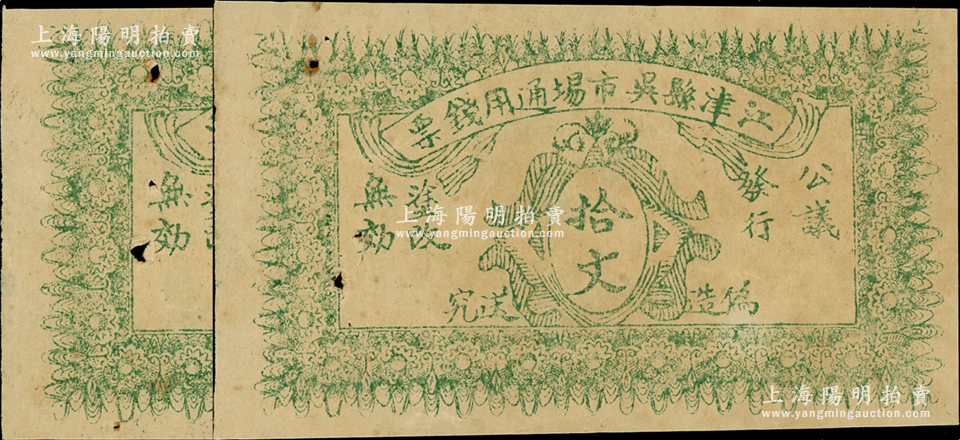 上海陽明拍賣
www.yangmingauction.com
江津縣吳市場通用錢票
公議
發行
拾文
塗改
無効
偽造
送究
無効
上海陽明拍賣
www.yangmingauction.com
上海陽明拍賣
www.yangmingauction.com